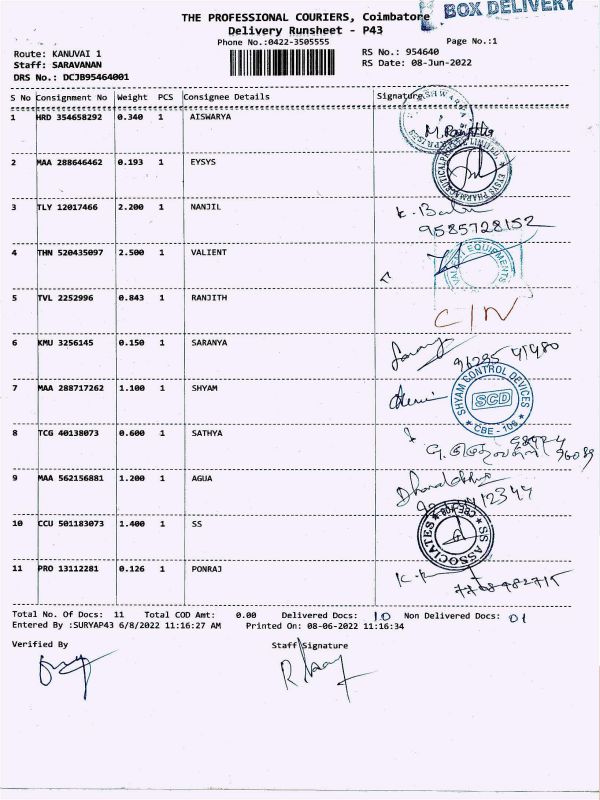 THE PROFESSIONAL COURIERS, Coimbatore
BOX DELIVERY
Delivery Runsheet - P43
Phone No.:0422-3505555
Page No.:1
Route: KANUVAI 1
RS No.: 954640
Staff: SARAVANAN
RS Date: 08-Jun-2022
DRS No.: DCJB95464001
S No Consignment No Weight PCS Consignee Details Signature
1 HRD 354658292 0.340 1 AISWARYA
2 MAA 288646462 0.193 1 EYSYS
3 TLY 12017466 2.200 1 NANJIL
9585728152
4 THN 520435097 2.500 1 VALIENT
EQUIPMENTS
5 TVL 2252996 0.843 1 RANJITH
6 KMU 3256145 0.150 1 SARANYA
7 MAA 288717262 1.100 1 SHYAM
SHYAM CONTROL DEVICES
SCD
CBE - 108
8 TCG 40138073 0.600 1 SATHYA
9 MAA 562156881 1.200 1 AGUA
10 CCU 501183073 1.400 1 SS
SS ASSOCIATES
11 PRO 13112281 0.126 1 PONRAJ
Total No. Of Docs: 11 Total COD Amt: 0.00 Delivered Docs: 10 Non Delivered Docs: 01
Entered By :SURYAP43 6/8/2022 11:16:27 AM Printed On: 08-06-2022 11:16:34
Verified By Staff Signature